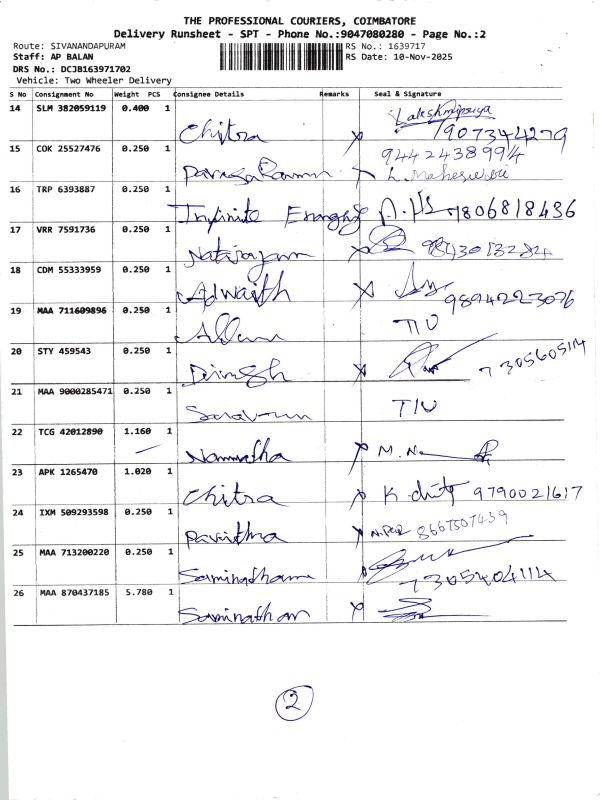 THE PROFESSIONAL COURIERS, COIMBATORE
Delivery Runsheet - SPT - Phone No.:9047080280 - Page No.:2
Route: SIVANANDAPURAM RS No.: 1639717
Staff: AP BALAN RS Date: 10-Nov-2025
DRS No.: DCJB163971702
Vehicle: Two Wheeler Delivery
S No Consignment No Weight PCS Consignee Details Remarks Seal & Signature
14 SLM 382059119 0.400 1 Chitra x Lakshmipriya
7907344279
15 COK 25527476 0.250 1 x 9442438994
L. Maheswari
16 TRP 6393887 0.250 1 Infinite 7806818436
17 VRR 7591736 0.250 1 Natarajan x
18 CDM 55333959 0.250 1 Adwaith x 9894223076
19 MAA 711609896 0.250 1 TIU
20 STY 459543 0.250 1 x 7305605114
21 MAA 9000285471 0.250 1 Saravanan TIU
22 TCG 42012890 1.160 1 Nammatha x M. N.
23 APK 1265470 1.020 1 Chitra x K. 9790021617
24 IXM 509293598 0.250 1 Pavithra x 8667507439
25 MAA 713200220 0.250 1 Saminathan x
7305404114
26 MAA 870437185 5.780 1 Saminathan x
2